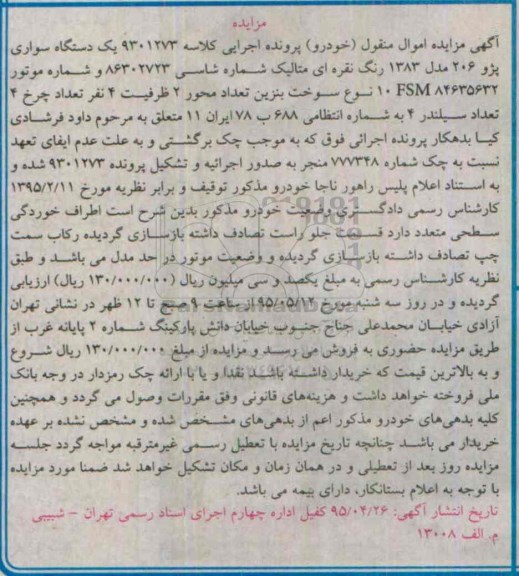 مزایده
آگهی مزایده اموال منقول (خودرو) پرونده اجرایی کلاسه ۹۳۰۱۲۷۳ یک دستگاه سواری
پژو ۲۰۶ مدل ۱۳۸۳ رنگ نقره ای متالیک شماره شاسی ۸۶۳۰۲۷۲۳ و شماره موتور
۱۰ FSM ۸۴۶۳۵۶۳۲ نوع سوخت بنزین تعداد محور ۲ ظرفیت ۴ نفر تعداد چرخ ۴
تعداد سیلندر ۴ به شماره انتظامی ۶۸۸ ب ۷۸ ایران ۱۱ متعلق به مرحوم داود فرشادی
کیا بدهکار پرونده اجرائی فوق که به موجب چک برگشتی و به علت عدم ایفای تعهد
نسبت به چک شماره ۷۷۷۳۴۸ منجر به صدور اجرائیه و تشکیل پرونده ۹۳۰۱۲۷۳ شده و
به استناد اعلام پلیس راهور ناجا خودرو مذکور توقیف و برابر نظریه مورخ ۱۳۹۵/۲/۱۱
کارشناس رسمی دادگستری وضعیت خودرو مذکور بدین شرح است اطراف خوردگی
سطحی متعدد دارد قسمت جلو راست تصادف داشته بازسازی گردیده رکاب سمت
چپ تصادف داشته بازسازی گردیده و وضعیت موتور در حد مدل می باشد و طبق
نظریه کارشناس رسمی به مبلغ یکصد و سی میلیون ریال (۱۳۰/۰۰۰/۰۰۰ ریال) ارزیابی
گردیده و در روز سه شنبه مورخ ۹۵/۰۵/۱۲ از ساعت ۹ صبح تا ۱۲ ظهر در نشانی تهران
آزادی خیابان محمدعلی جناح جنوب خیابان دانش پارکینگ شماره ۲ پایانه غرب از
طریق مزایده حضوری به فروش می رسد و مزایده از مبلغ ۱۳۰/۰۰۰/۰۰۰ ریال شروع
و به بالاترین قیمت که خریدار داشته باشد نقدا و یا با ارائه چک رمزدار در وجه بانک
ملی فروخته خواهد داشت و هزینه‌های قانونی وفق مقررات وصول می گردد و همچنین
کلیه بدهی‌های خودرو مذکور اعم از بدهی‌های مشخص شده و مشخص نشده بر عهده
خریدار می باشد چنانچه تاریخ مزایده با تعطیل رسمی غیرمترقبه مواجه گردد جلسه
مزایده روز بعد از تعطیلی و در همان زمان و مکان تشکیل خواهد شد ضمنا مورد مزایده
با توجه به اعلام بستانکار، دارای بیمه می باشد.
تاریخ انتشار آگهی: ۹۵/۰۴/۲۶ کفیل اداره چهارم اجرای اسناد رسمی تهران - شبیبی
م. الف ۱۳۰۰۸